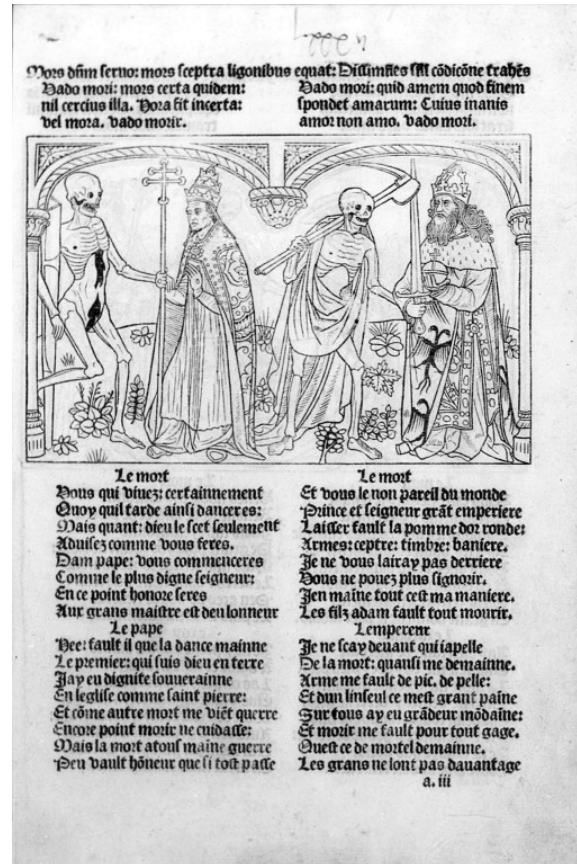 Mors dñm seruo: mors sceptra ligonibus equat: Dissimiles sili cõdicõne trahẽs
Vado mori: mors certa quidem:
nil cercius illa. Hora fit incerta:
vel mora. vado morir.
Vado mori: quid amem quod finem
spondet amarum: Cuius inanis
amor non amo. vado mori.
Le mort
Vous qui viuez: certainnement
Quoy quil tarde ainsi danceres:
Mais quant: dieu le scet seulement
Aduisez comme vous feres.
Dam pape: vous commenceres
Comme le plus digne seigneur:
En ce point honore seres
Aux grans maistre est deu lonneur
Le pape
Hee: fault il que la dance mainne
Le premier: qui suis dieu en terre
Jay eu dignite souuerainne
En leglise comme saint pierre:
Et cõme autre mort me viẽt querre
Encore point morir ne cuidasse:
Mais la mort a tous maine guerre
Peu vault hõneur que si tost passe
Le mort
Et vous le non pareil du monde
Prince et seigneur grãt emperiere
Laisser fault la pomme dor ronde:
Armes: ceptre: timbre: baniere.
Je ne vous lairay pas derriere
Vous ne pouez plus signorir.
Jen maine tout cest ma maniere.
Les filz adam fault tout mourir.
Lempereur
Je ne scay deuant qui iapelle
De la mort: quansi me demainne.
Arme me fault de pic. de pelle:
Et dun linseul ce mest grant paine
Sur tous ay eu grãdeur mõdaine:
Et morir me fault pour tout gage.
Quest ce de mortel demainne.
Les grans ne lont pas dauantage
a. iii